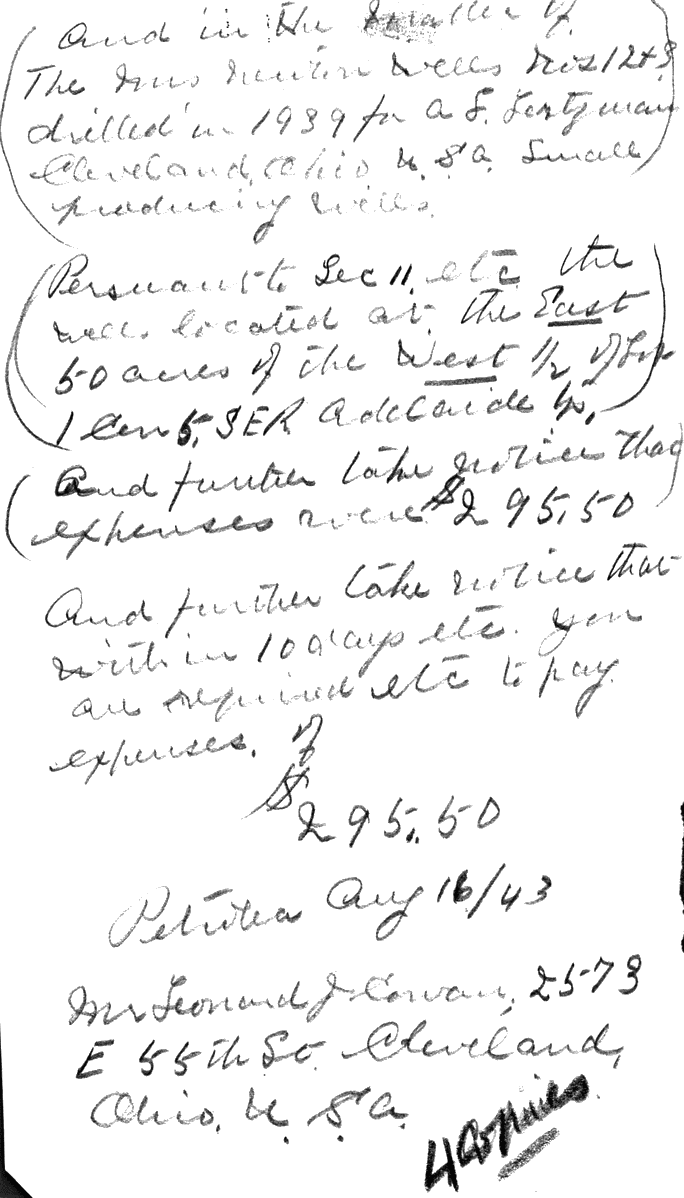 And in the matter of
The Mrs Newton wells Nos 1 2 + 3
drilled in 1939 for A S.
Cleveland, Ohio U. S. A. Small
producing wells.
Persuant to Sec 11. etc the
wells located at the East
50 acres of the West 1/2 of Lot
1 Con 5, SER Adelaide Tp.
And further take notice that
expenses were $295.50
And further take notice that
within 10 days etc. you
are required etc to pay
expenses. of
$
295.50
Petrolea Aug 16/43
Mr Leonard J Cowan, 2573
E 55th St. Cleveland,
Ohio, U. S. A.
4 Copies